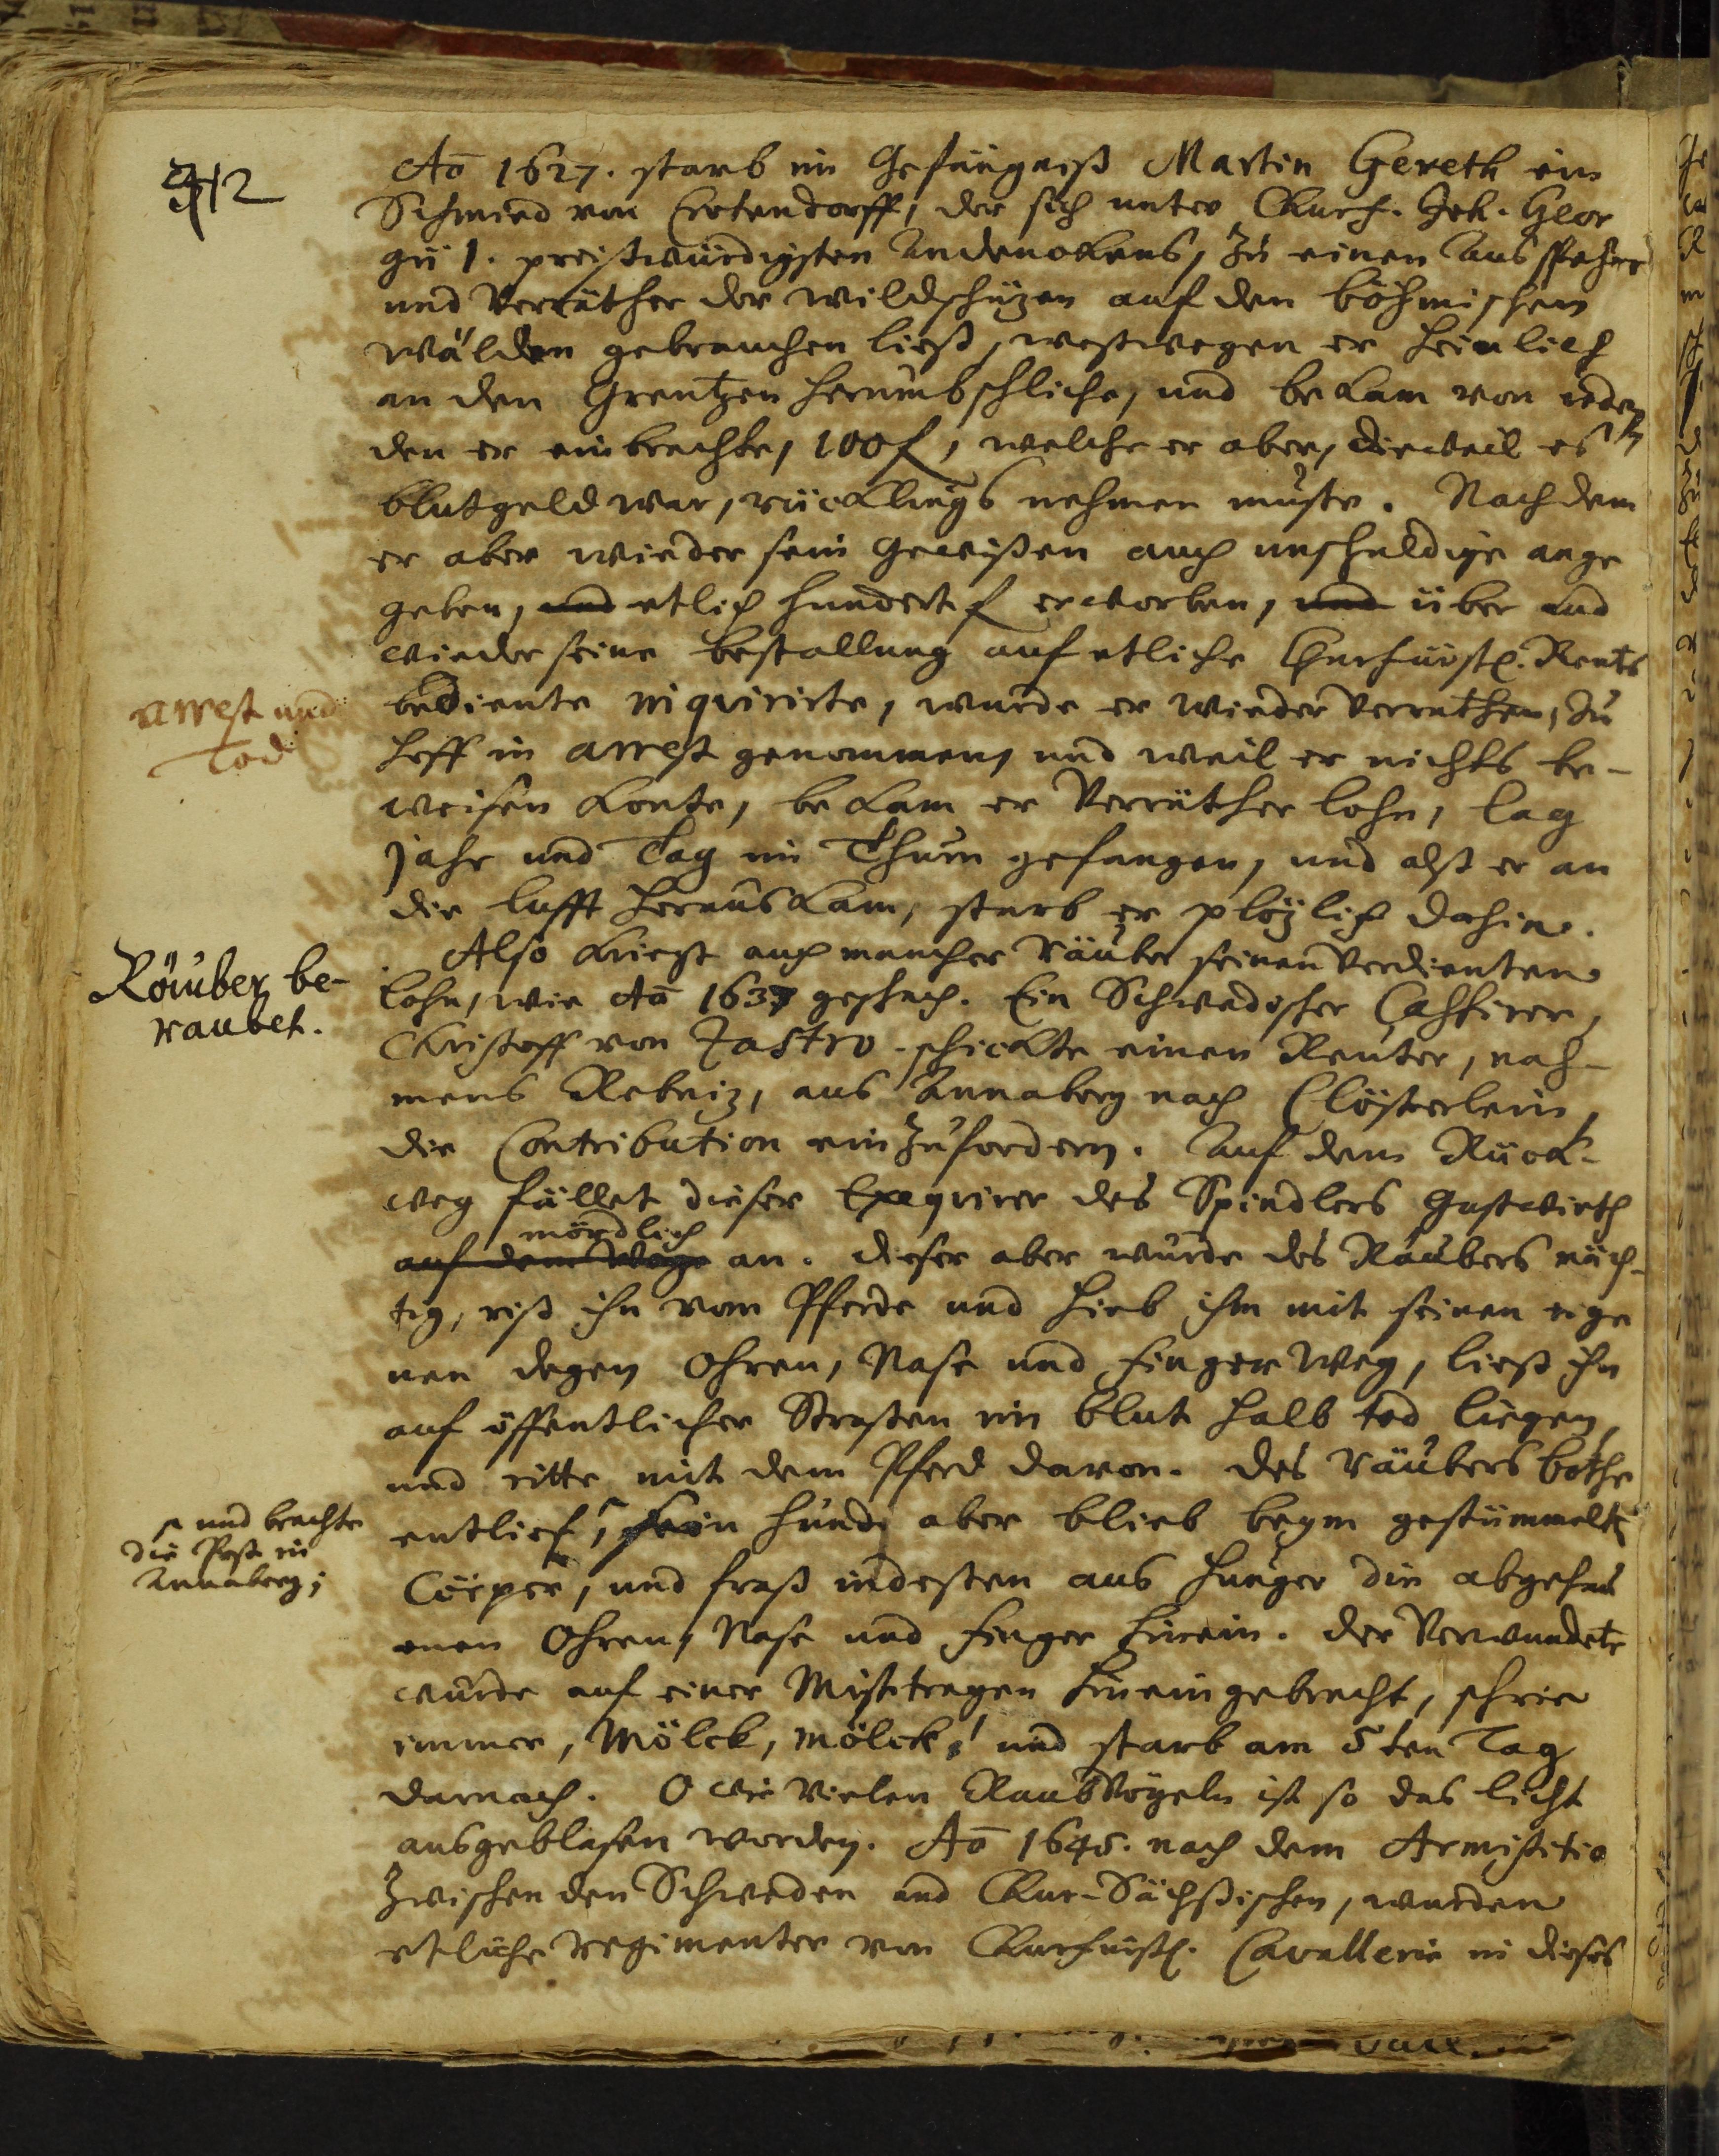 412
Ao 1627. starb im Gefängniß Martin Gereth ein
Schmied von Crotendorff, der sich unter Churf. Joh. Geor
gii 1. preißwürdigsten Andenckens, zu einen Ausspeher
und Verräther der Wildschüzen auf den böhmischen
Wälden gebrauchen ließ, weßwegen er heimlich
an den Grentzen herumbschliche, und bekam von ieden
den er einbrachte, 100 f, welche er aber, dieweil es
blutgeld war, rücklings nehmen muste. Nachdem
er aber wieder sein Gewißen auch unschuldige ange
geben, und etlich hundert f erworben, und über und
wieder seine bestallung auf etliche Churfürstl. Rents
bediente inquirirte, wurde er wieder verrathen, zu
Hoff in arrest genommen, und weil er nichts be-
weisen konte, bekam er Verräther lohn, lag
Jahr und Tag im Thurn gefangen, und alß er an
die Lufft herauskam, starb er plözlich dahin.
arrest und
Tod
Also kriegt auch mancher Räuber seinen verdienten
lohn, wie Ao 1637 geschach. Ein Schwedischer Cassirer,
Christoff von Jastro schickte einen Reuter, nah-
mens Rebniz, aus Annaberg nach Clösterlein,
die Contribution einzufordern. Auf dem Rück-
weg fället dieser Exequirer des Spindlers Gastwirth
mördlich
auf dem Wege an. dieser aber wurde des Räubers mäch-
tig, riß ihn vom Pferde und hieb ihm mit seinen eige
nen degen Ohren, Nase und Finger weg, ließ ihn
auf öffentlicher Straßen im blut halb tod liegen,
und ritte mit dem Pferd davon. des Räubers bothe
entlief, sein hund aber blieb beym gestümmelten
Cörper, und fraß indeßen aus hunger die abgehau
enen Ohren, Nase und Finger hinein. der Verwundete
wurde auf einer Misttragen hineingebracht, schrie
immer, Mölck, mölck! und starb am 5ten Tag
darnach. O wie vielen Raubvögeln ist so das licht
ausgeblasen worden. Ao 1645. nach dem Armistitio
zwischen den Schweden und Chur-Sächßischen, wurden
etliche Regimenter von Churfürstl. Cavallerie in dieses
Räuber be-
raubet.
und brachte
die Post in
Annaberg;